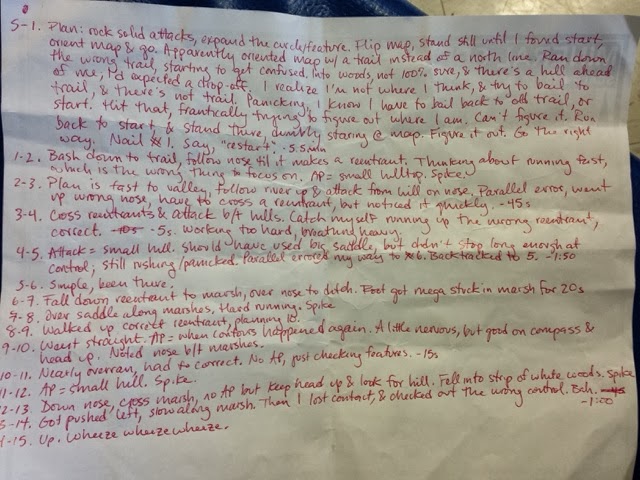 S-1. Plan: rock solid attacks, expand the circle/feature. Flip map, stand still until I found start,
orient map & go. Apparently oriented map w/ a trail instead of a north line. Ran down
the wrong trail, starting to get confused. Into woods, not 100% sure, & there's a hill ahead
of me, I'd expected a drop-off. I realize I'm not where I think, & try to bail to
trail, & there's not trail. Panicking, I know I have to bail back to old trail, or
start. Hit that, frantically trying to figure out where I am. Can't figure it. Run
back to start & stand there, dumbly staring @ map. Figure it out. Go the right
way. Nail #1. Say, "restart". -5.5min
1-2. Bash down to trail, follow nose til it makes a reentrant. Thinking about running fast,
which is the wrong thing to focus on. AP= small hilltop. Spike.
2-3. Plan is fast to valley, follow river up & attack from hill on nose. Parallel error, went
up wrong nose, have to cross a reentrant, but noticed it quickly. -45s
3-4. Cross reentrants & attack b/t hills. Catch myself running up the wrong reentrant,
correct. -10s -5s. Working too hard, breathing heavy.
4-5. Attack= small hill. Should have used big saddle, but didn't stop long enough at
control; still rushing/panicked. Parallel errored my way to #6. Backtracked to 5. -1:50
5-6. Simple, been there.
6-7. Fall down reentrant to marsh, over nose to ditch. Foot got mega stuck in marsh for 20s
7-8. Over saddle along marshes. Hard running. Spike
8-9. Walked up correct reentrant, planning 10.
9-10. Went straight. AP= when contours happened again. A little nervous, but good on compass &
head up. Noted nose b/t marshes.
10-11. Nearly overran, had to correct. No AP, just checking features. -15s
11-12. AP= small hill. Spike.
12-13. Down nose, cross marsh, no AP but keep head up & look for hill. Fell into strip of white woods. Spike
3-14. Got pushed left, slow along marsh. Then I lost contact, & checked out the wrong control. Bah. -45
-1:00
4-15. Up. Wheeze wheeze wheeze.